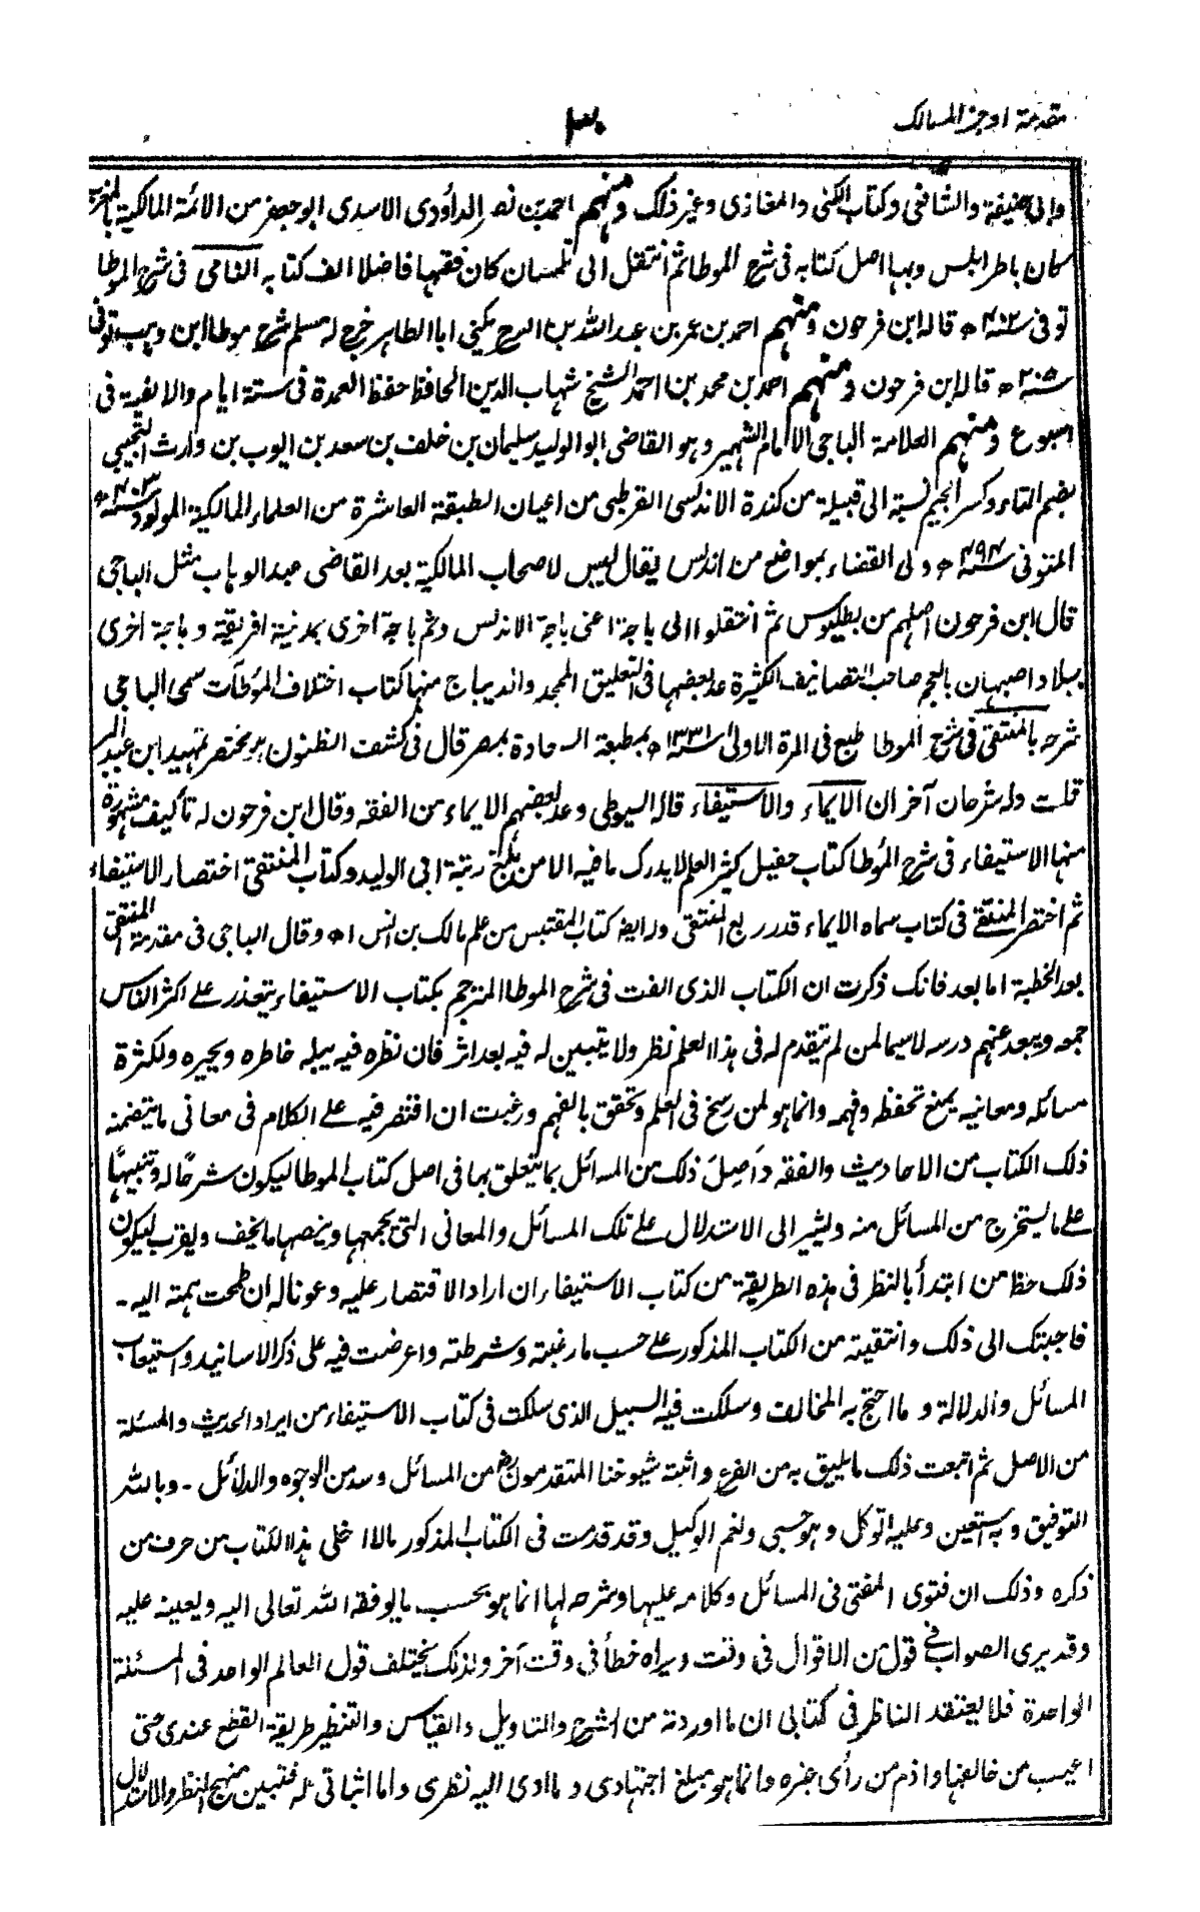 مقدمة اوجز المسالك
٣٠
وابى حنيفة والشافعى وكتاب الكنى والمغازى وغير ذلك ومنهم احمد بن نصر الداؤدى الاسدى ابو جعفر من الائمة المالكية بالمغرب
كان باطرابلس وبها اصل كتابه فى شرح الموطا ثم انتقل الى تلمسان كان فقيها فاضلا الف كتابه النامى فى شرح الموطا
توفى سنة ٤٠٢ھ قاله ابن فرحون ومنهم احمد بن عمر بن عبد الله بن السرح يكنى ابا الطاهر خرج له مسلم شرح موطا ابن وهب توفى
قاله ابن فرحون ومنهم احمد بن محمد بن احمد الشيخ شهاب الدين الحافظ حفظ العمدة فى ستة ايام والالفية فى
اسبوع ومنهم العلامة الباجى الامام الشهير وهو القاضى ابو الوليد سليمان بن خلف بن سعد بن ايوب بن وارث التجيبى
بضم التاء وكسر الجيم نسبة الى قبيلة من كندة الاندلسى القرطبى من اعيان الطبقة العاشرة من العلماء المالكية المولود سنة ٤٠٣ھ
المتوفى سنة ٤٩٤ھ ولى القضاء بمواضع من اندلس يقال ليس لاصحاب المالكية بعد القاضى عبد الوهاب مثل الباجى
قال ابن فرحون اصلهم من بطليوس ثم انتقلوا الى باجة اعنى باجة الاندلس وثم باجة اخرى بمدينة افريقة وباجة اخرى
ببلاد اصبهان بالعجم صاحب التصانيف الكثيرة عد بعضها فى التعليق الممجد والديباج منها كتاب اختلاف المؤطآت سمى الباجى
شرحه بالمنتقى فى شرح الموطا طبع فى المرة الاولى سنة ١٣٣١ھ بمطبعة السعادة بمصر قال فى كشف الظنون هو مختصر تمهيد ابن عبد البر
قلت وله شرحان آخران الايماء والاستيفاء قاله السيوطى وعد بعضهم الايماء من الفقه وقال ابن فرحون له تأليف مشهورة
منها الاستيفاء فى شرح المؤطا كتاب حفيل كثير العلم لا يدرك ما فيه الا من بلغ رتبة ابى الوليد وكتاب المنتقى اختصار الاستيفاء
ثم اختصر المنتقى فى كتاب سماه الايماء قدر ربع المنتقى وله ايضا كتاب المقتبس من علم مالك بن انس اھ وقال الباجى فى مقدمة المنتقى
بعد الخطبة اما بعد فانك ذكرت ان الكتاب الذى الفت فى شرح الموطا المترجم بكتاب الاستيفاء يتعذر على اكثر الناس
جمعه ويبعد عنهم درسه لاسيما لمن لم يتقدم له فى هذا العلم نظر ولا يتبين له فيه بعد اثر فان نظره فيه يبله خاطره ويحيره ولكثرة
مسائله ومعانيه يمنع تحفظه وفهمه وانما هو لمن رسخ فى العلم وتحقق بالفهم ورغبت ان اقتصر فيه على الكلام فى معانى ما يتضمنه
ذلك الكتاب من الاحاديث والفقه واصل ذلك من المسائل بما يتعلق بها فى اصل كتاب الموطا ليكون شرحًا له وتنبيهًا
على ما يستخرج من المسائل منه ويشير الى الاستدلال على تلك المسائل والمعانى التى يجمعها وينصها ما يخف ويقرب ليكون
ذلك حظ من ابتدأ بالنظر فى هذه الطريقة من كتاب الاستيفاء ان اراد الاقتصار عليه وعونا له ان طمحت همته اليه۔
فاجبتك الى ذلك وانتقيته من الكتاب المذكور على حسب ما رغبته وشرطته واعرضت فيه على ذكر الاسانيد واستيعاب
المسائل والدلالة وما احتج به المخالف وسلكت فيه السبيل الذى سلكت فى كتاب الاستيفاء من ايراد الحديث والمسئلة
من الاصل ثم اتبعت ذلك ما يليق به من الفرع واثبته شيوخنا المتقدمون رض من المسائل وسد من الوجوه والدلائل۔ وبالله
التوفيق وبه استعين وعليه اتوكل وهو حسبى ونعم الوكيل وقد قدمت فى الكتاب المذكور مالا اخلى هذا الكتاب من حرف من
ذكره وذلك ان فتوى المفتى فى المسائل وكلامه عليها وشرحه لها انما هو بحسب ما يوفقه الله تعالى اليه ويعينه عليه
وقد يرى الصواب فى قول من الاقوال فى وقت ويراه خطأ فى وقت آخر ولذلك يختلف قول العالم الواحد فى المسئلة
الواحدة فلا يعتقد الناظر فى كتابى ان ما اوردته من الشرح والتاويل والقياس والتنظير طريقة القطع عندى حتى
اعيب من خالفها واذم من رأى غيره وانما هو مبلغ اجتهادى وما ادى اليه نظرى واما اثباتى له فتبين منهج النظر والاستدلال